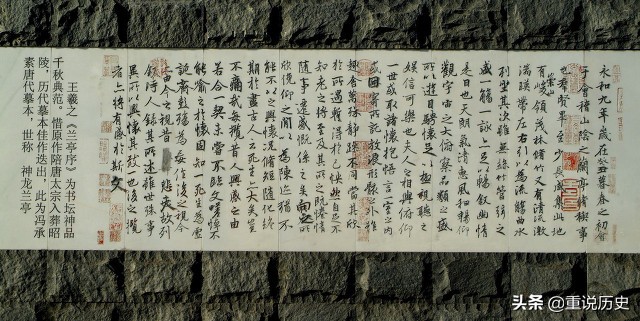 永和九年歲在癸丑暮春之初會
于會稽山陰之蘭亭脩稧事
也羣賢畢至少長咸集此地
有崇山峻領茂林脩竹又有清流激
湍暎帶左右引以為流觴曲水
列坐其次雖無絲竹管弦之
盛一觴一詠亦足以暢敘幽情
是日也天朗氣清惠風和暢仰
觀宇宙之大俯察品類之盛
所以遊目騁懷足以極視聽之
娛信可樂也夫人之相與俯仰
一世或取諸懷抱悟言一室之內
或因寄所託放浪形骸之外雖
趣舍萬殊靜躁不同當其欣
於所遇暫得於己怏然自足不
知老之將至及其所之既惓情
隨事遷感慨係之矣向之所
欣俛仰之間以為陳迹猶不
能不以之興懷況脩短隨化終
期於盡古人云死生亦大矣豈
不痛哉每攬昔人興感之由
若合一契未嘗不臨文嗟悼不
能喻之於懷固知一死生為虛
誕齊彭殤為妄作後之視今
亦由今之視昔悲夫故列
敘時人錄其所述雖世殊事
異所以興懷其致一也後之攬
者亦將有感於斯文
王羲之《兰亭序》为书坛神品
千秋典范。惜原作陪唐太宗入葬昭
陵，历代摹本，佳作迭出，此为冯承
素唐代摹本，世称 神龙兰亭
头条 @重说历史